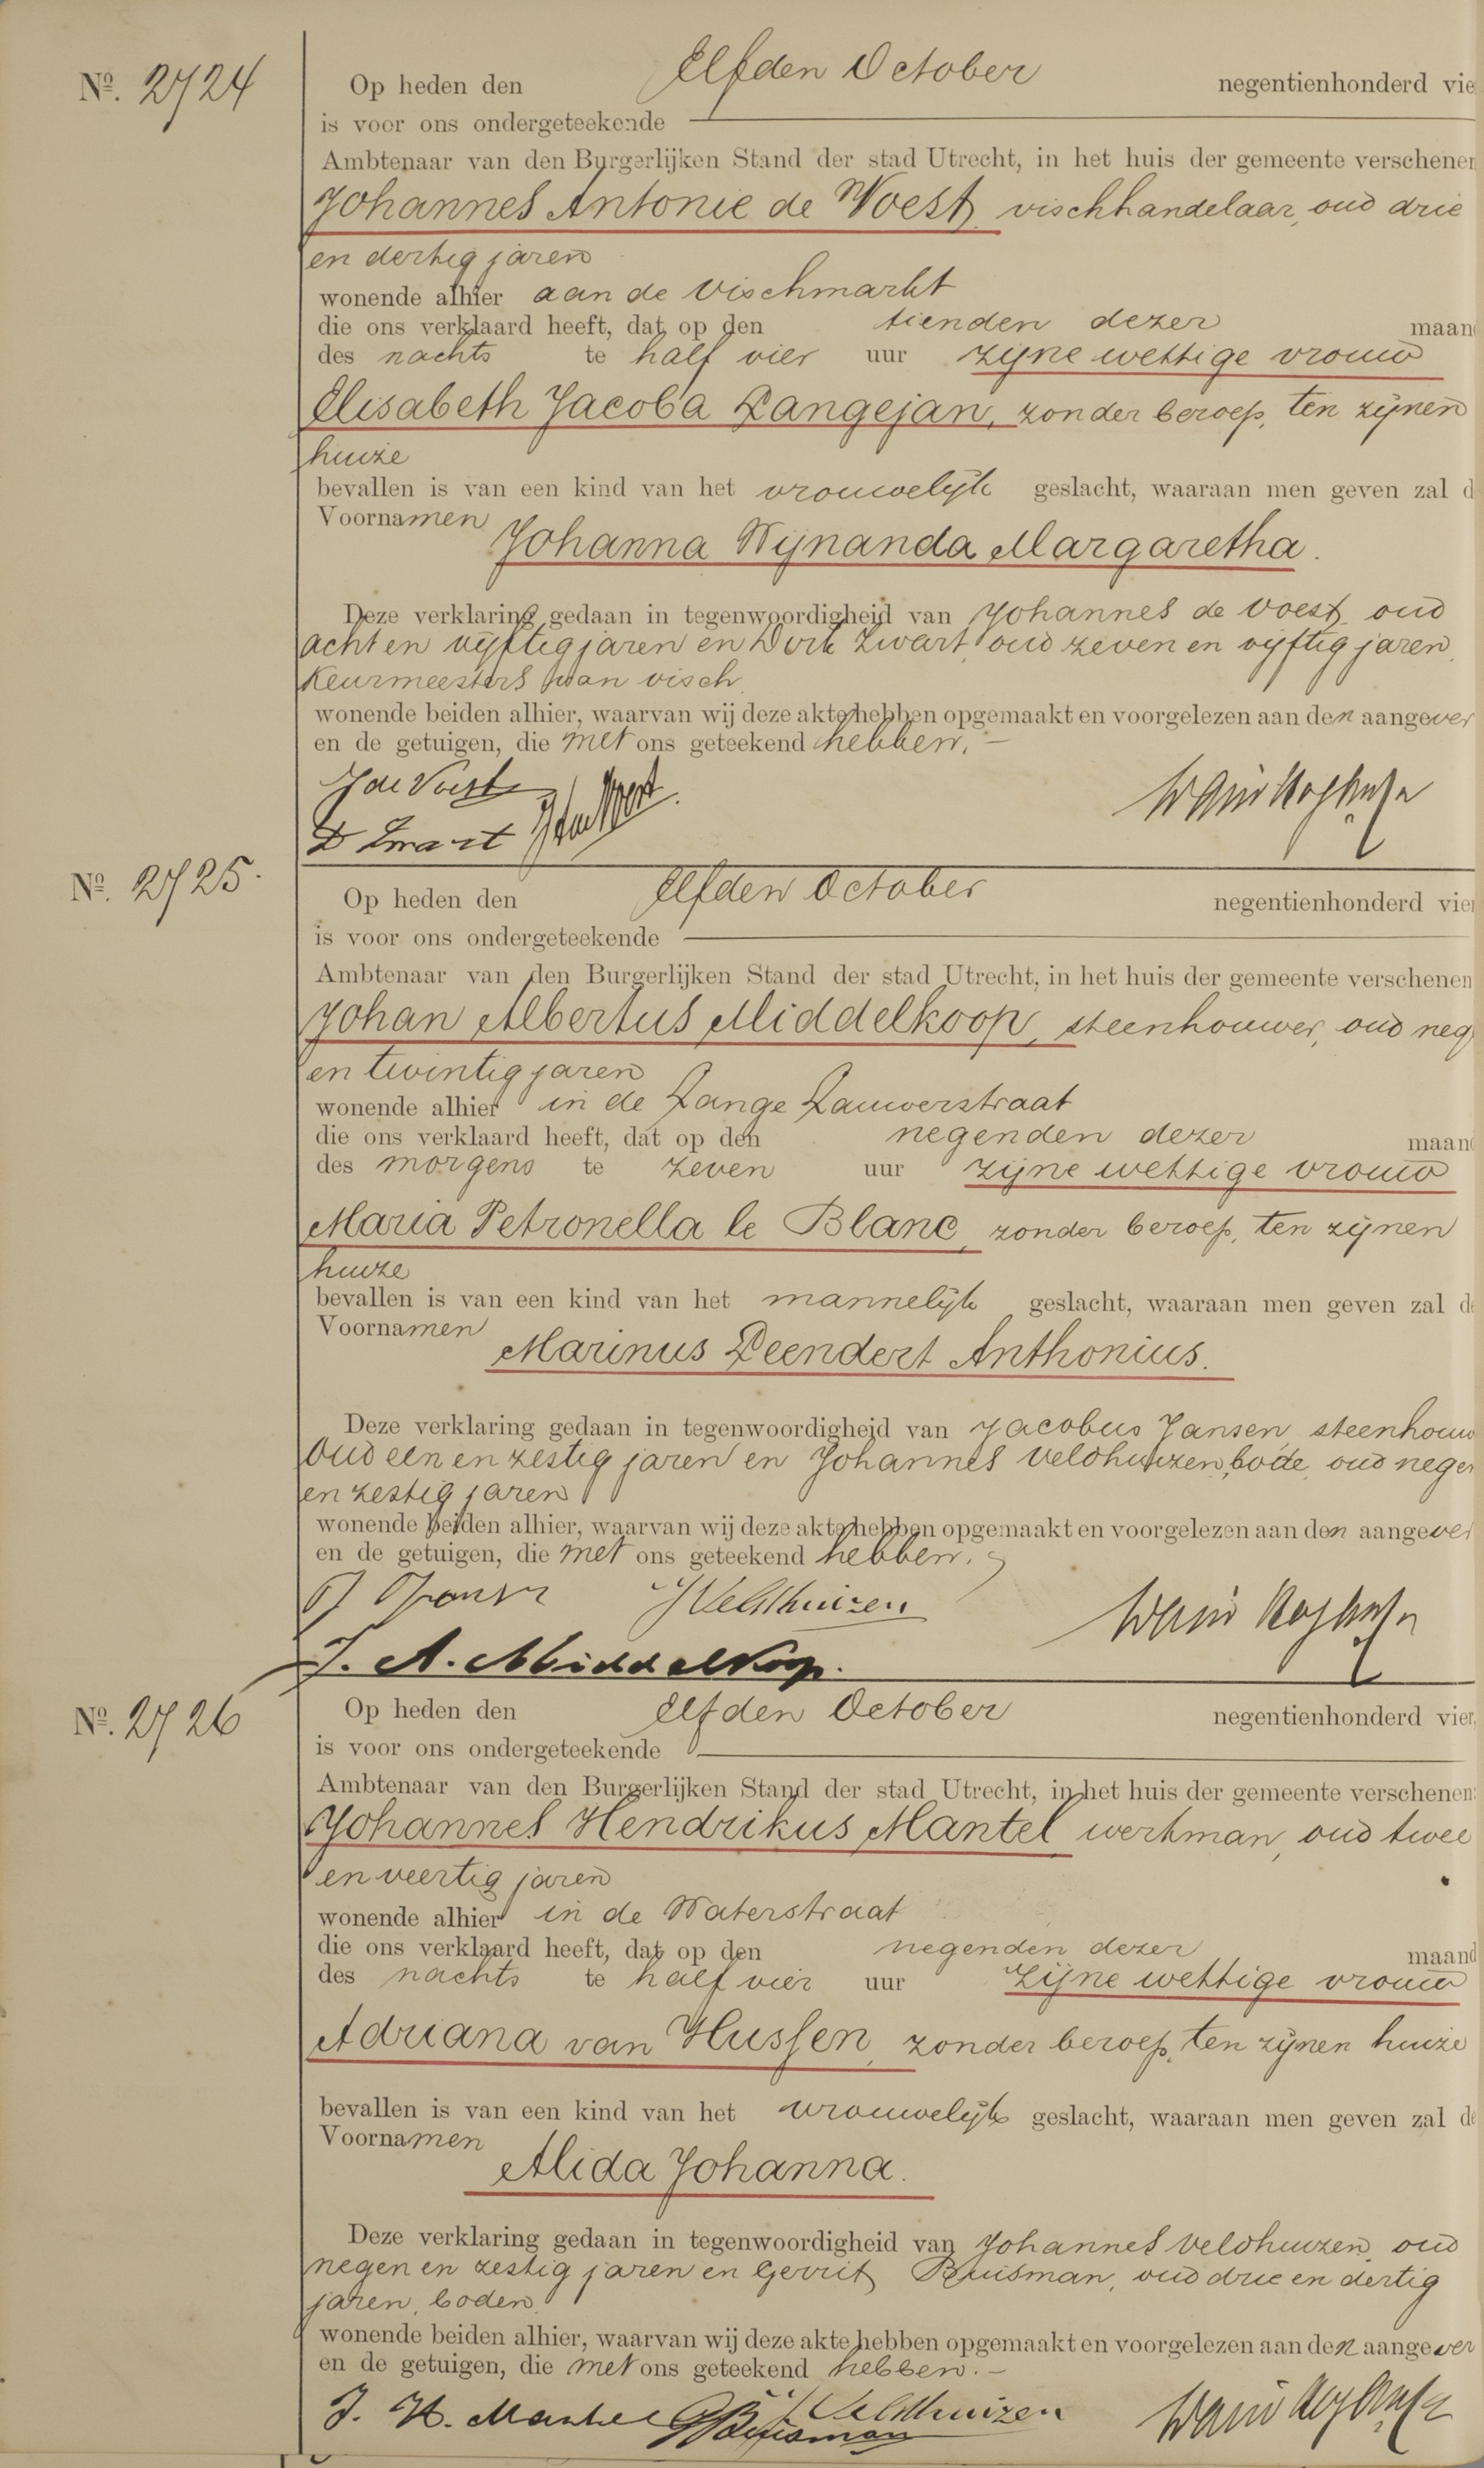 Nº. 2724
Op heden den Elfden October negentienhonderd vie
is voor ons ondergeteekende
Ambtenaar van den Burgerlijken Stand der stad Utrecht, in het huis der gemeente verschenen
Johannes Antonie de Voest, vischhandelaar, oud drie
en dertig jaren
wonende alhier aan de Vischmarkt
die ons verklaard heeft, dat op den tienden dezer maand
des nachts te half vier uur zijne wettige vrouw
Elisabeth Jacoba Langejan, zonder beroep, ten zijnen
huize
bevallen is van een kind van het vrouwelijk geslacht, waaraan men geven zal d
Voornamen
Johanna Wijnanda Margaretha.
Deze verklaring gedaan in tegenwoordigheid van Johannes de Voest, oud
acht en vijftig jaren en Dirk Zwart, oud zeven en vijftig jaren,
Keurmeesters van visch
wonende beiden alhier, waarvan wij deze akte hebben opgemaakt en voorgelezen aan den aangever
en de getuigen, die met ons geteekend hebben. –
J de Voest
D Zwart
Nº. 2725.
Op heden den Elfden October negentienhonderd vier
is voor ons ondergeteekende
Ambtenaar van den Burgerlijken Stand der stad Utrecht, in het huis der gemeente verschenen
Johan Albertus Middelkoop, steenhouwer, oud neg
en twintig jaren
wonende alhier in de Lange Lauwerstraat
die ons verklaard heeft, dat op den negenden dezer maand
des morgens te zeven uur zijne wettige vrouw
Maria Petronella le Blanc, zonder beroep, ten zijnen
huize
bevallen is van een kind van het mannelijk geslacht, waaraan men geven zal de
Voornamen
Marinus Leendert Anthonius.
Deze verklaring gedaan in tegenwoordigheid van Jacobus Jansen, steenhouw
oud een en zestig jaren en Johannes Veldhuizen, bode, oud negen
en zestig jaren
wonende beiden alhier, waarvan wij deze akte hebben opgemaakt en voorgelezen aan den aangever
en de getuigen, die met ons geteekend hebben.
J Jansen JVeldhuizen
J. A. Middelkoop.
Nº. 2726
Op heden den Elfden October negentienhonderd vier
is voor ons ondergeteekende
Ambtenaar van den Burgerlijken Stand der stad Utrecht, in het huis der gemeente verschenen:
Johannes Hendrikus Mantel, werkman, oud twee
en veertig jaren
wonende alhier in de Waterstraat
die ons verklaard heeft, dat op den negenden dezer maand
des nachts te half vier uur zijne wettige vrouw
Adriana van Hussen, zonder beroep, ten zijnen huize
bevallen is van een kind van het vrouwelijk geslacht, waaraan men geven zal de
Voornamen
Alida Johanna.
Deze verklaring gedaan in tegenwoordigheid van Johannes Veldhuizen, oud
negen en zestig jaren en Gerrit Buisman, oud drie en dertig
jaren, boden
wonende beiden alhier, waarvan wij deze akte hebben opgemaakt en voorgelezen aan den aangever
en de getuigen, die met ons geteekend hebben. –
J. H. Mantel GBuisman JVeldhuizen